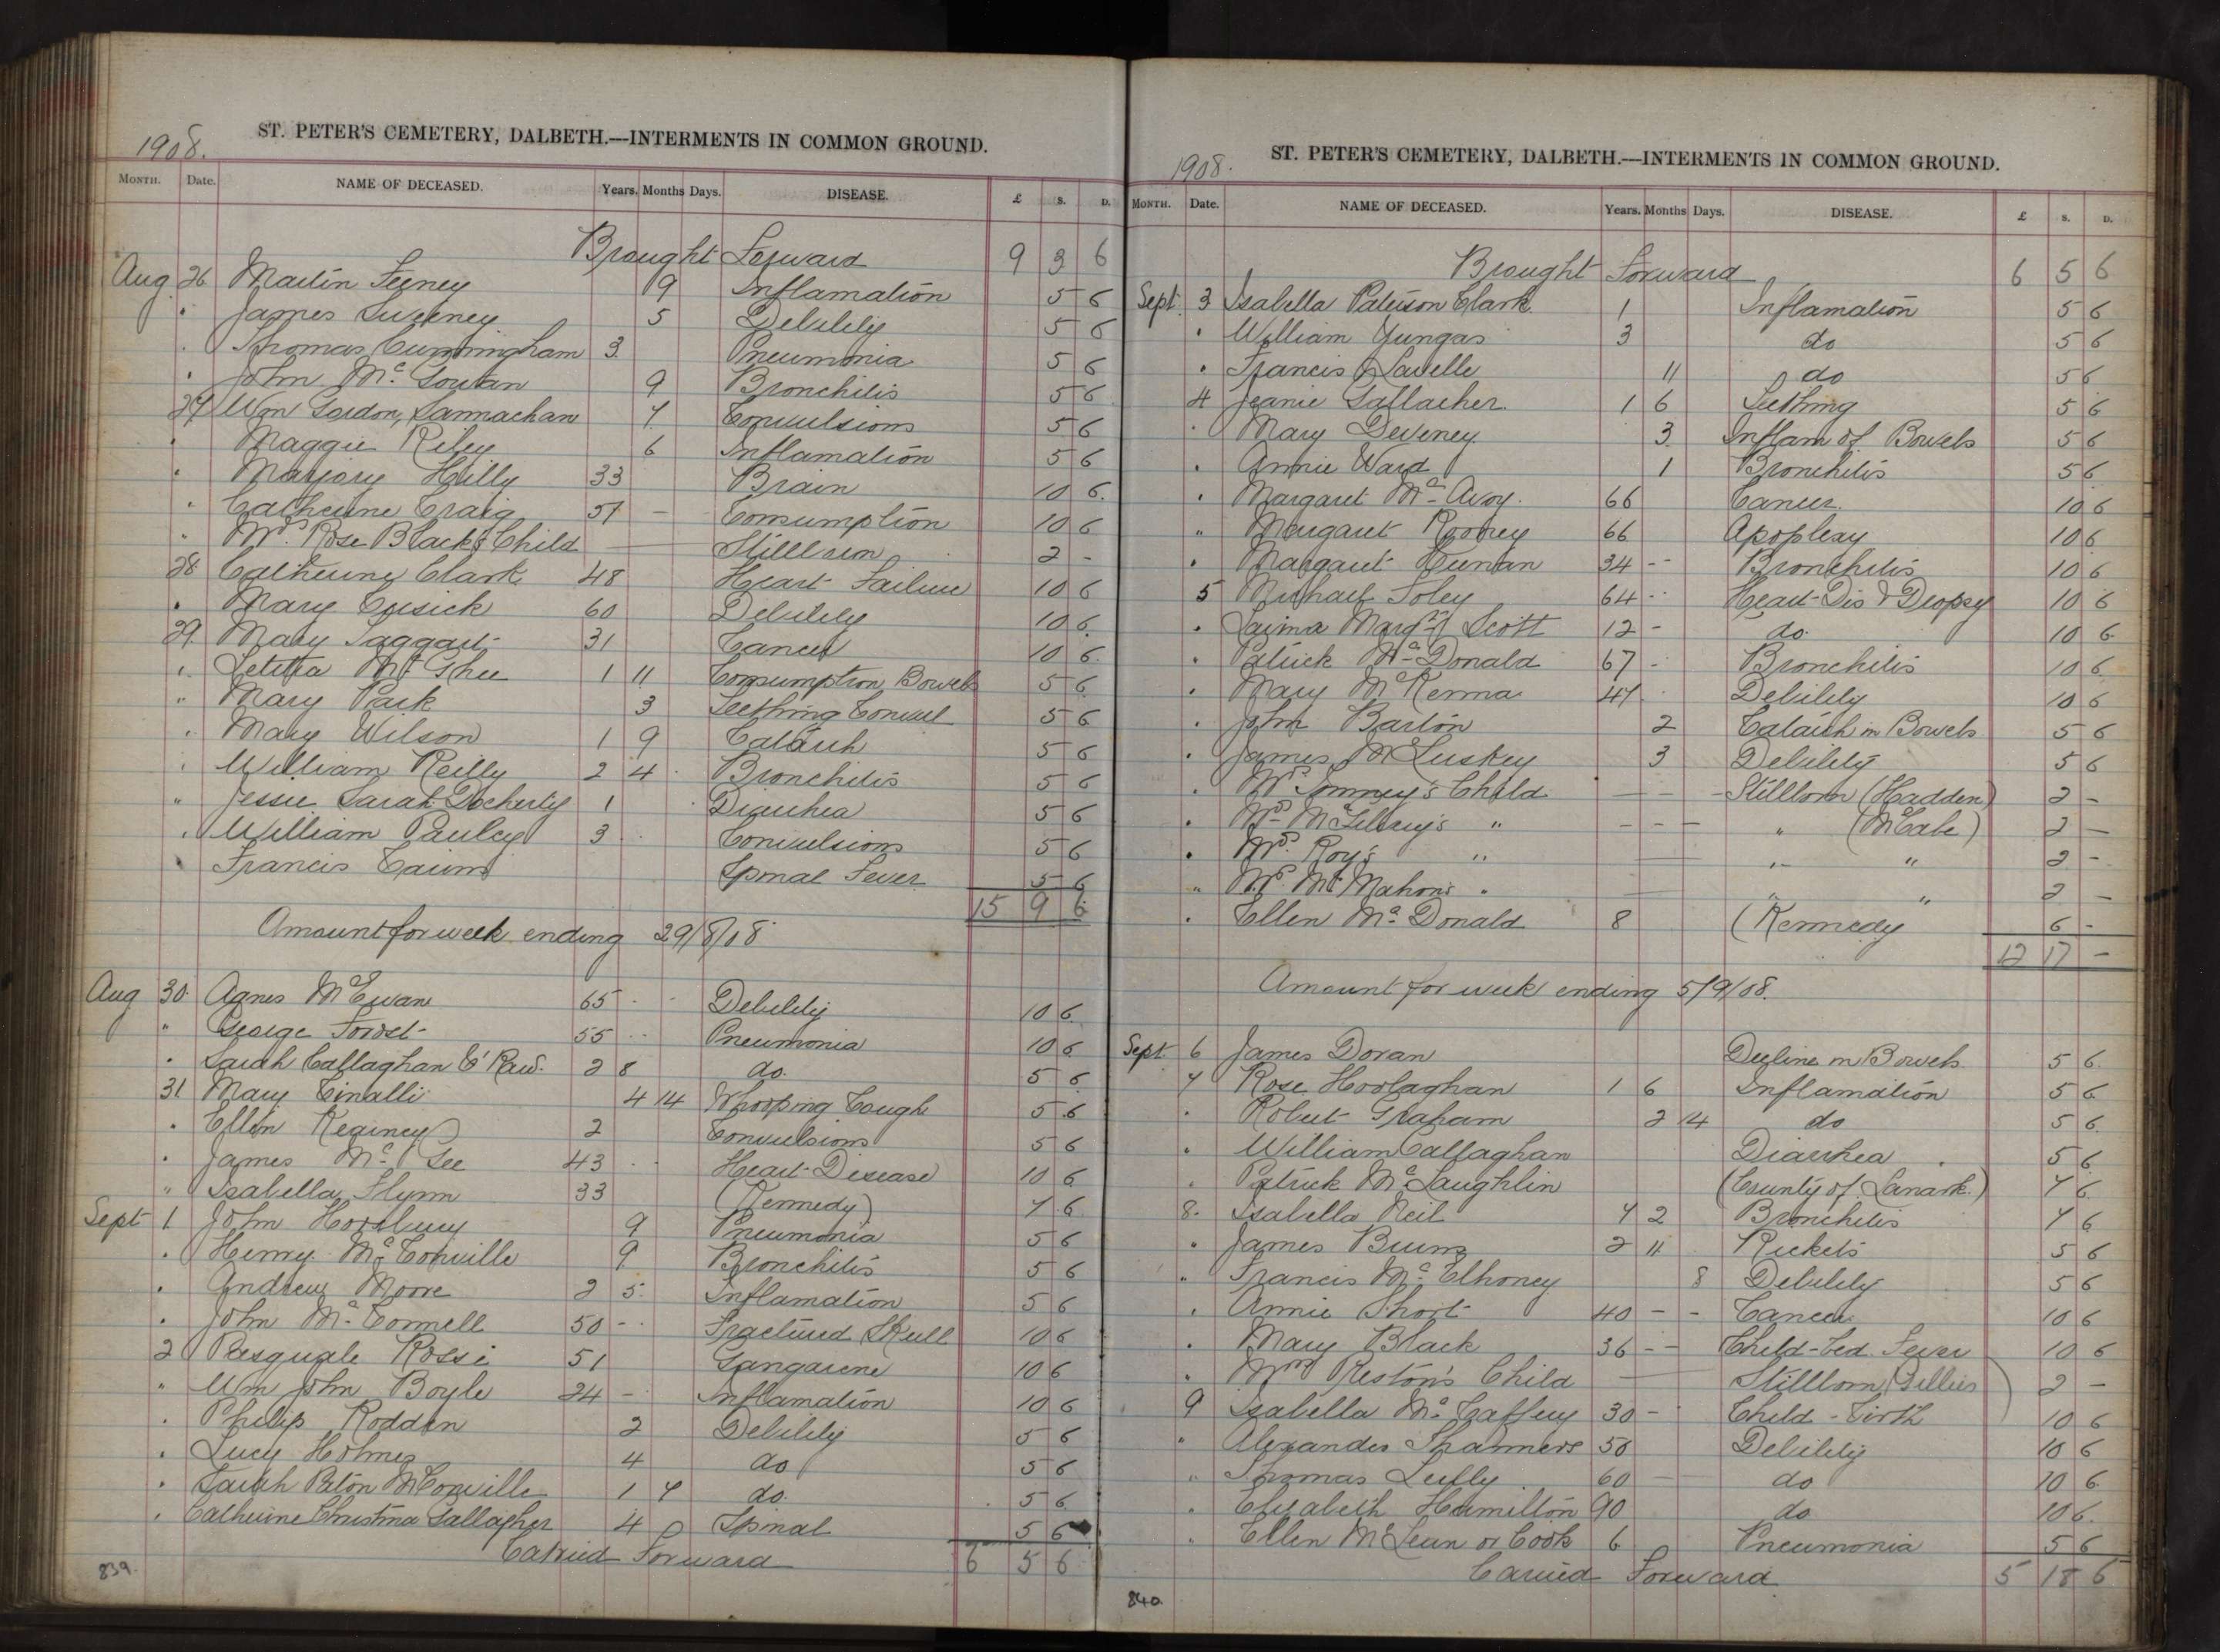 1908.
ST. PETER'S CEMETERY, DALBETH.—INTERMENTS IN COMMON GROUND.
MONTH. Date. NAME OF DECEASED. Years. Months Days. DISEASE. £ S. D.
Brought Forward 9 3 6
Aug 26 Martin Feeney 9 Inflamation 5 6
" James Sweeney 5 Debility 5 6
" Thomas Cunningham 3 Pneumonia 5 6
" John Mc Gowan 9 Bronchitis 5 6
27 Wm Gordon, Lannachan 7 Convulsions 5 6
" Maggie Riley 6 Inflamation 5 6
" Marjory Hilly 33 Brain 10 6
" Catherine Craig 57 – Consumption 10 6
" Mrs Rose Black's Child — Stillborn 2 -
28 Catherine Clark 48 Heart Failure 10 6
" Mary Cusick 60 Debility 10 6
29 Mary Taggart 31 Cancer 10 6
" Letitia Mc Ghee 1 11 Consumption Bowels 5 6
" Mary Park 3 Teething Convul 5 6
" Mary Wilson 1 9 Catarrh 5 6
" William Reilly 2 4 Bronchitis 5 6
" Jessie Sarah Docherty 1 Diarrhea 5 6
" William Pauley 3 Convulsions 5 6
" Francis Cairns Spinal Fever 5 6
15 9 6
Amount for week ending 29/8/08
Aug 30 Agnes McEwan 65 Debility 10 6
" George 55 Pneumonia 10 6
" Sarah Callaghan 2 8 do. 5 6
31 Mary Cinalli 4 14 Whooping Cough 5 6
" Ellen 2 Convulsions 5 6
" James Mc Gee 43 Heart Disease 10 6
" Isabella Flynn 33 (Kennedy) 7 6
Sept 1 John Horsbury 9 Pneumonia 5 6
" Henry Mc Conville 9 Bronchitis 5 6
" Andrew Moore 2 5 Inflamation 5 6
" John Mc Connell 50 Fractured Skull 10 6
2 Pasquale Rossi 51 Gangarene 10 6
" Wm John Boyle 24 – Inflamation 10 6
" Philip Rodden 2 Debility 5 6
" Lucy Holmes 4 do 5 6
" Sarah Paton McConville 1 7 do. 5 6
" Catherine Christina Gallagher 4 Spinal 5 6
Carried Forward 6 5 6
839.
1908.
ST. PETER'S CEMETERY, DALBETH.—INTERMENTS IN COMMON GROUND.
MONTH. Date. NAME OF DECEASED. Years. Months Days. DISEASE. £ S. D.
Brought Forward 6 5 6
Sept 3 Isabella Paterson Clark 1 Inflamation 5 6
" William Yungas 3 do 5 6
" Francis Lavelle 11 do 5 6
4 Jeanie Gallacher 1 6 Teething 5 6
" Mary Deveney 3 Inflam of Bowels 5 6
" Annie Ward 1 Bronchitis 5 6
" Margaret Mc Avoy 66 Cancer 10 6
" Margaret Rooney 66 Apoplexy 10 6
" Margaret 34 – – Bronchitis 10 6
5 Michael Foley 64 Heart Dis & Dropsy 10 6
" Margt Scott 12 – do. 10 6
" Patrick Mc Donald 67 – Bronchitis 10 6
" Mary McKenna 47 Debility 10 6
" John Barton 2 Catarrh in Bowels 5 6
" James McLuskey 3 Debility 5 6
" Mrs Tomney's Child – – – Stillborn (Hadden) 2 –
" Mrs McGilvray's " – – – " (McCabe) 2 –
" Mrs Roy's " — " " 2 –
" Mrs McMahon's " — " " 2 –
" Ellen Mc Donald 8 (Kennedy 6 –
12 17 –
Amount for week ending 5/9/08.
Sept 6 James Doran Decline in Bowels 5 6
7 Rose Hoolaghan 1 6 Inflamation 5 6
" Robert Graham 2 14 do 5 6
" William Callaghan Diarrhea 5 6
" Patrick Mc Laughlin (County of Lanark.) 7 6
8. Isabella Neil 7 2 Bronchitis 7 6
" James Burns 2 11 Rickets 5 6
" Francis Mc Elhoney 8 Debility 5 6
" Annie Short 40 – – Cancer 10 6
" Mary Black 36 – – Child-bed Fever 10 6
" Mrs Reston's Child — Stillborn (Gillies) 2 –
9 Isabella Mc Caffery 30 – Child-birth 10 6
" Alexander 50 Debility 10 6
" Thomas Lully 60 – do 10 6
" Elizabeth Hamilton 90 do 10 6
" Ellen McLean or Cook 6 Pneumonia 5 6
Carried Forward 5 18 6
840.